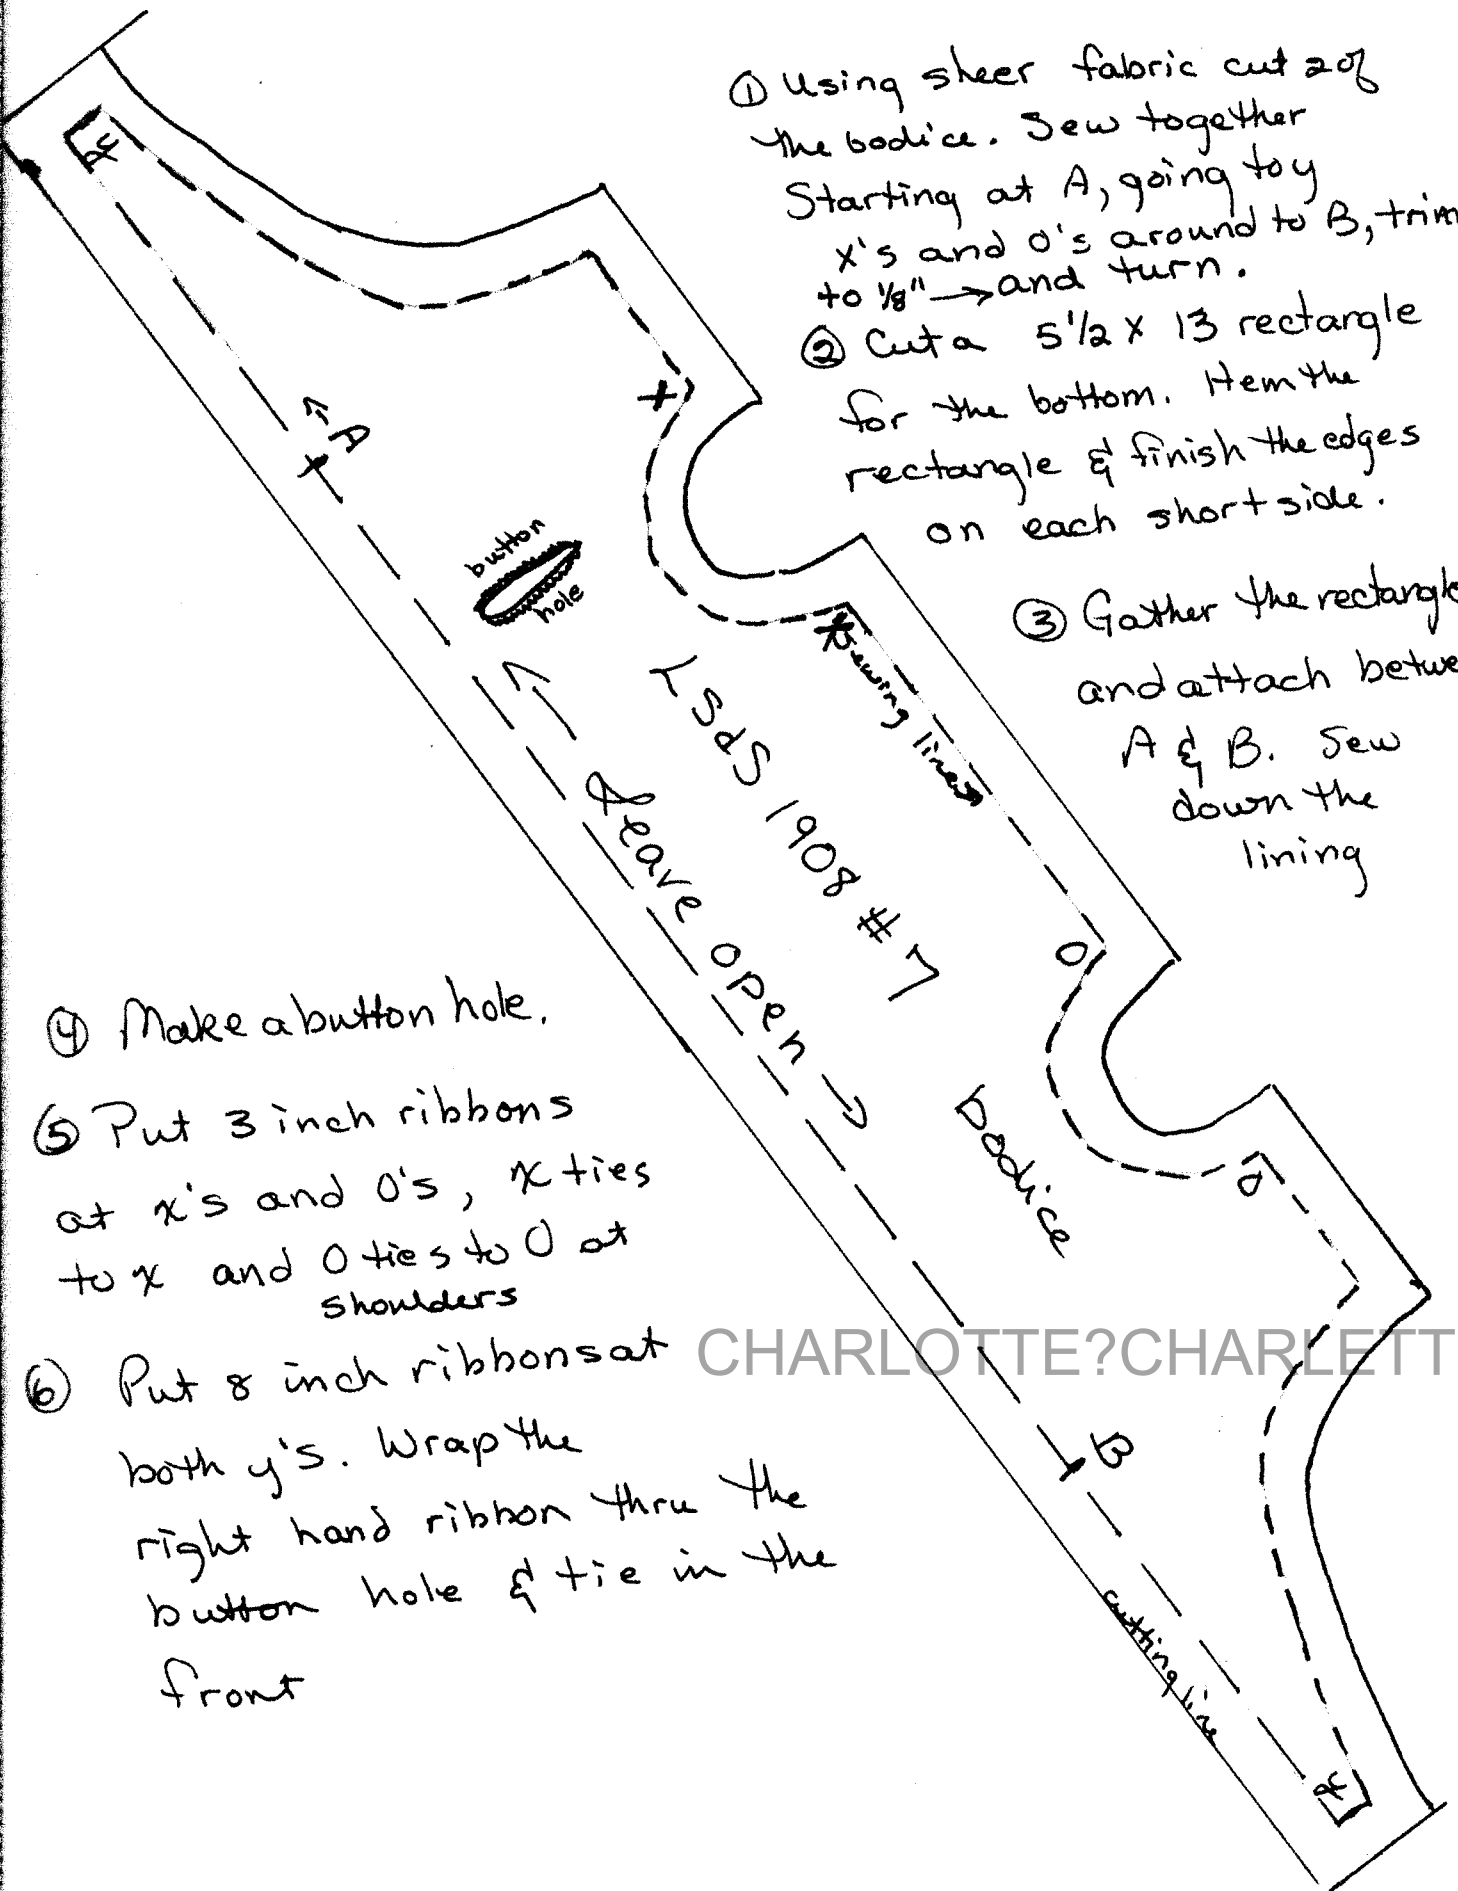 ① Using sheer fabric cut 2 of
the bodice. Sew together
Starting at A, going to y
x's and o's around to B, trim
to 1/8" → and turn.
② Cut a 5 1/2 x 13 rectangle
for the bottom. Hem the
rectangle & finish the edges
on each short side.
③ Gather the rectangle
and attach betwe
A & B. Sew
down the
lining
y
A
X
button
hole
X
sewing line
LSdS 1908 #7
← Leave open →
O
bodice
O
B
cutting line
y
④ Make a button hole.
⑤ Put 3 inch ribbons
at x's and O's, x ties
to x and O ties to O at
shoulders
⑥ Put 8 inch ribbons at
both y's. Wrap the
right hand ribbon thru the
button hole & tie in the
front
CHARLOTTE?CHARLETT